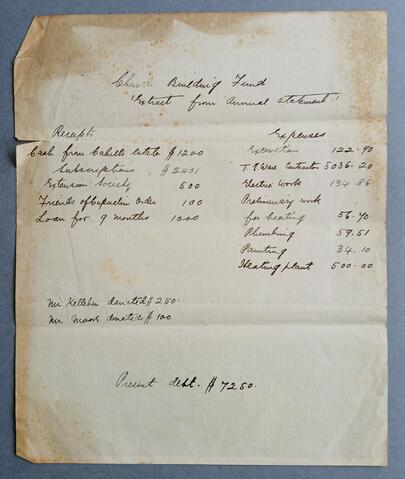 Church Building Fund
'Extract from Annual Statement'
Receipts
Cash from Cahill's estate $1200
Subscriptions $2401
Extension Society 500
Friends of Capuchin Order 100
Loan for 9 months 1000
Expenses
Excavation 122.90
T. P. Ware Contractor 5036.20
Electric work 134.86
Preliminary work
for heating 56.70
Plumbing 59.51
Painting 34.10
Heating plant 500.00
Mr Kelleher donated $250.
Mr Moore donated $100
Present debt. $7250.